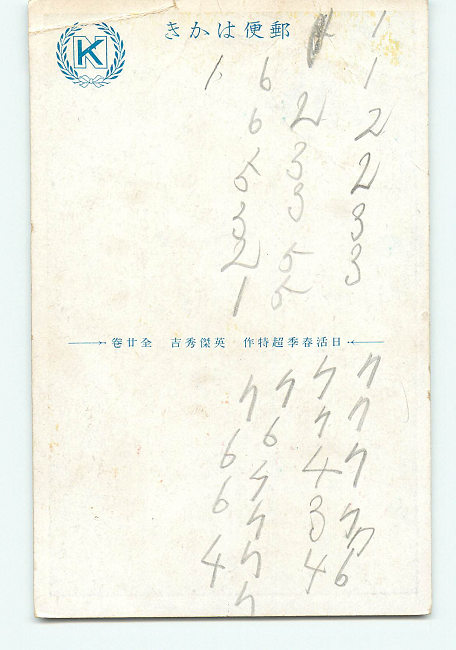 郵便はかき
K
1 1 2 2 3 3
2 3 3 5 5
6 6 5 3 2 1
1
日活春季超特作 英傑秀吉 全廿巻
7 7 7 7 7 6
7 7 4 3 4
7 6 7 7 7 7
7 6 6 4